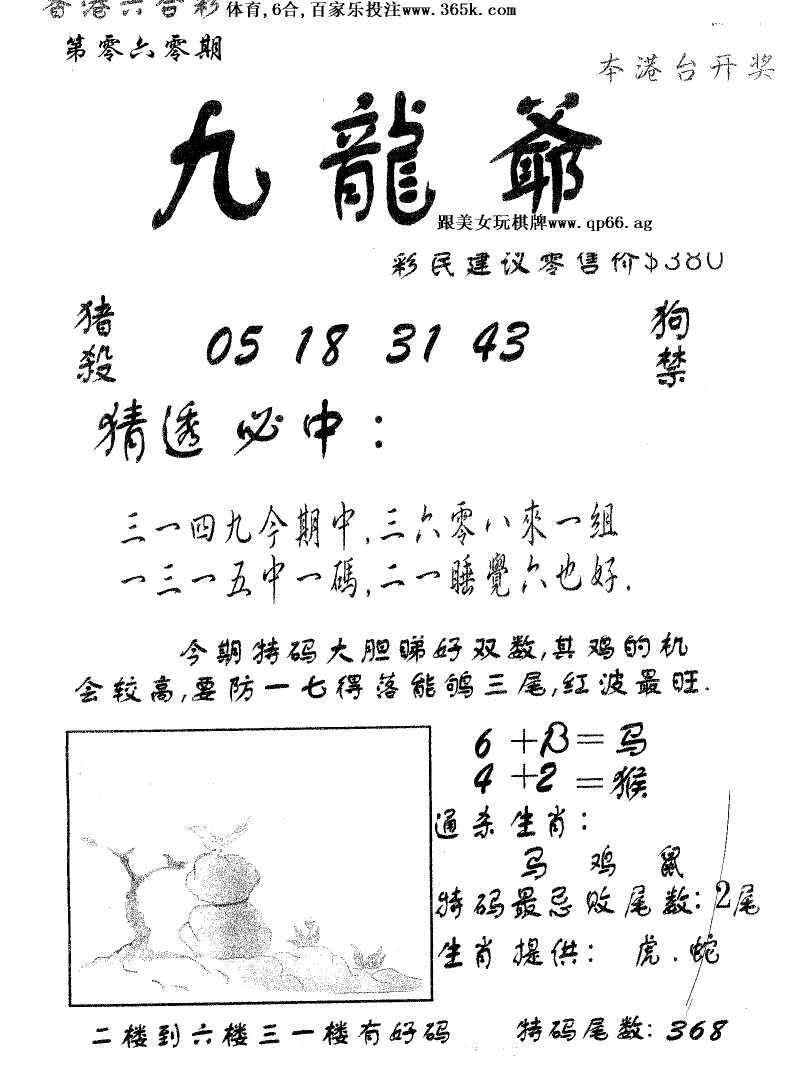 香港六合彩 体育,6合,百家乐投注www.365k.com
第零六零期
本港台开奖
九龍爺
跟美女玩棋牌www.qp66.ag
彩民建议零售价$380
猪殺 05 18 31 43 狗禁
猜透必中：
三一四九今期中,三六零八來一組
一三一五中一碼,二一睡覺六也好.
今期特码大胆睇好双数,其鸡的机
会较高,要防一七得落能鸲三尾,红波最旺.
6+B=马
4+2=猴
通杀生肖：
马 鸡 鼠
特码最忌败尾数：2尾
生肖提供： 虎.蛇
二楼到六楼三一楼有好码 特码尾数：368